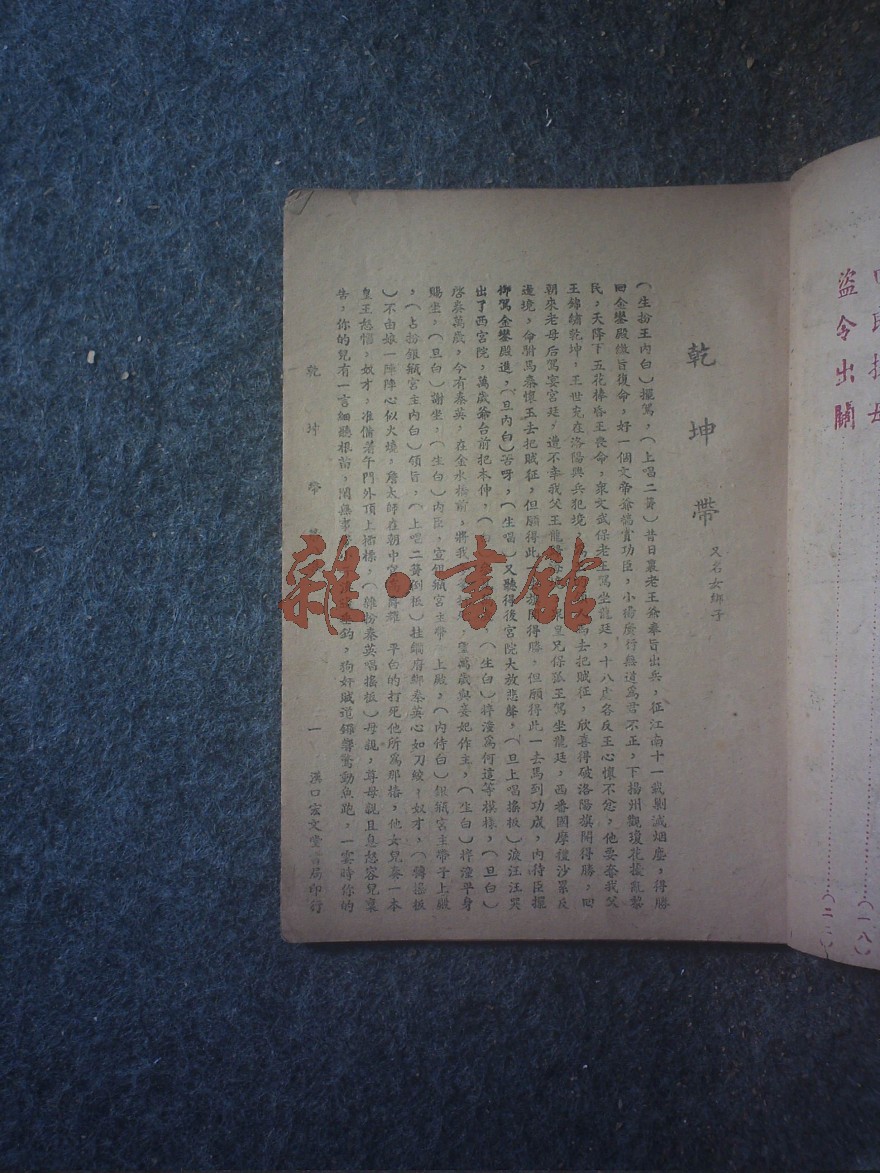 盜令出關
……(一八)
……(二二)
乾坤帶
又名女綁子
(生扮王內白)擺駕,(上唱二簧)昔日裏老王爺奉旨出兵,征江南十一載剿滅烟塵,得勝
回金鑾殿繳旨復命,好一個文帝爺犒賞功臣,小楊廣行無道為君不正,下揚州觀瓊花擾亂黎
民,天降下五花棒昏王喪命,衆文武保老王駕坐龍廷,十八路各反王心懷不忿,他要奪我父
王錦繡乾坤,王世充在洛陽興兵犯境,去把賊征,欣喜得破洛陽旗開得勝,回
朝來老母后駕宴宮廷,遭不幸我父王龍皇兄保孤王駕坐龍廷,西番國摩擅沙累反
邊境,命駙馬秦懷玉去把賊征,但願得此一旗開得勝,但願得此一去馬到功成,內侍臣擺
御駕金鑾殿進,(旦內白)苦呀,(生唱)又聽得後宮院大放悲聲,(旦上唱搖板)淚汪汪哭
出了西宮院,萬歲爺台前把本伸,(生白)梓潼為何這等模樣,(旦白)
啓奏萬歲,今有秦英,在金水橋前,將我望萬歲與妾妃作主,(生白)梓潼平身
賜坐,(旦白)謝坐,(生白)內臣,宣銀瓶宮主帶上殿,(內侍白)銀瓶宮主帶子上殿
,(占扮銀瓶宮主內白)領旨,(上唱二簧倒板)在綉府綁秦英心如刀絞,奴才,(轉搖板
)不由娘一陣陣心似火燒,詹太師在朝中平白的打死他所為那樁,他女兒奏一本
皇王惱,奴才,准備着午門外頂上標,(雜扮秦英唱搖板)母親,尊母親且息怒容兒稟
告,你的兒有一言細聽根苗,閑無事鈎,狗奸賊道鑼響驚動魚跑,一霎時你的
乾坤帶 一 漢口宏文堂書局印行
雜·書館